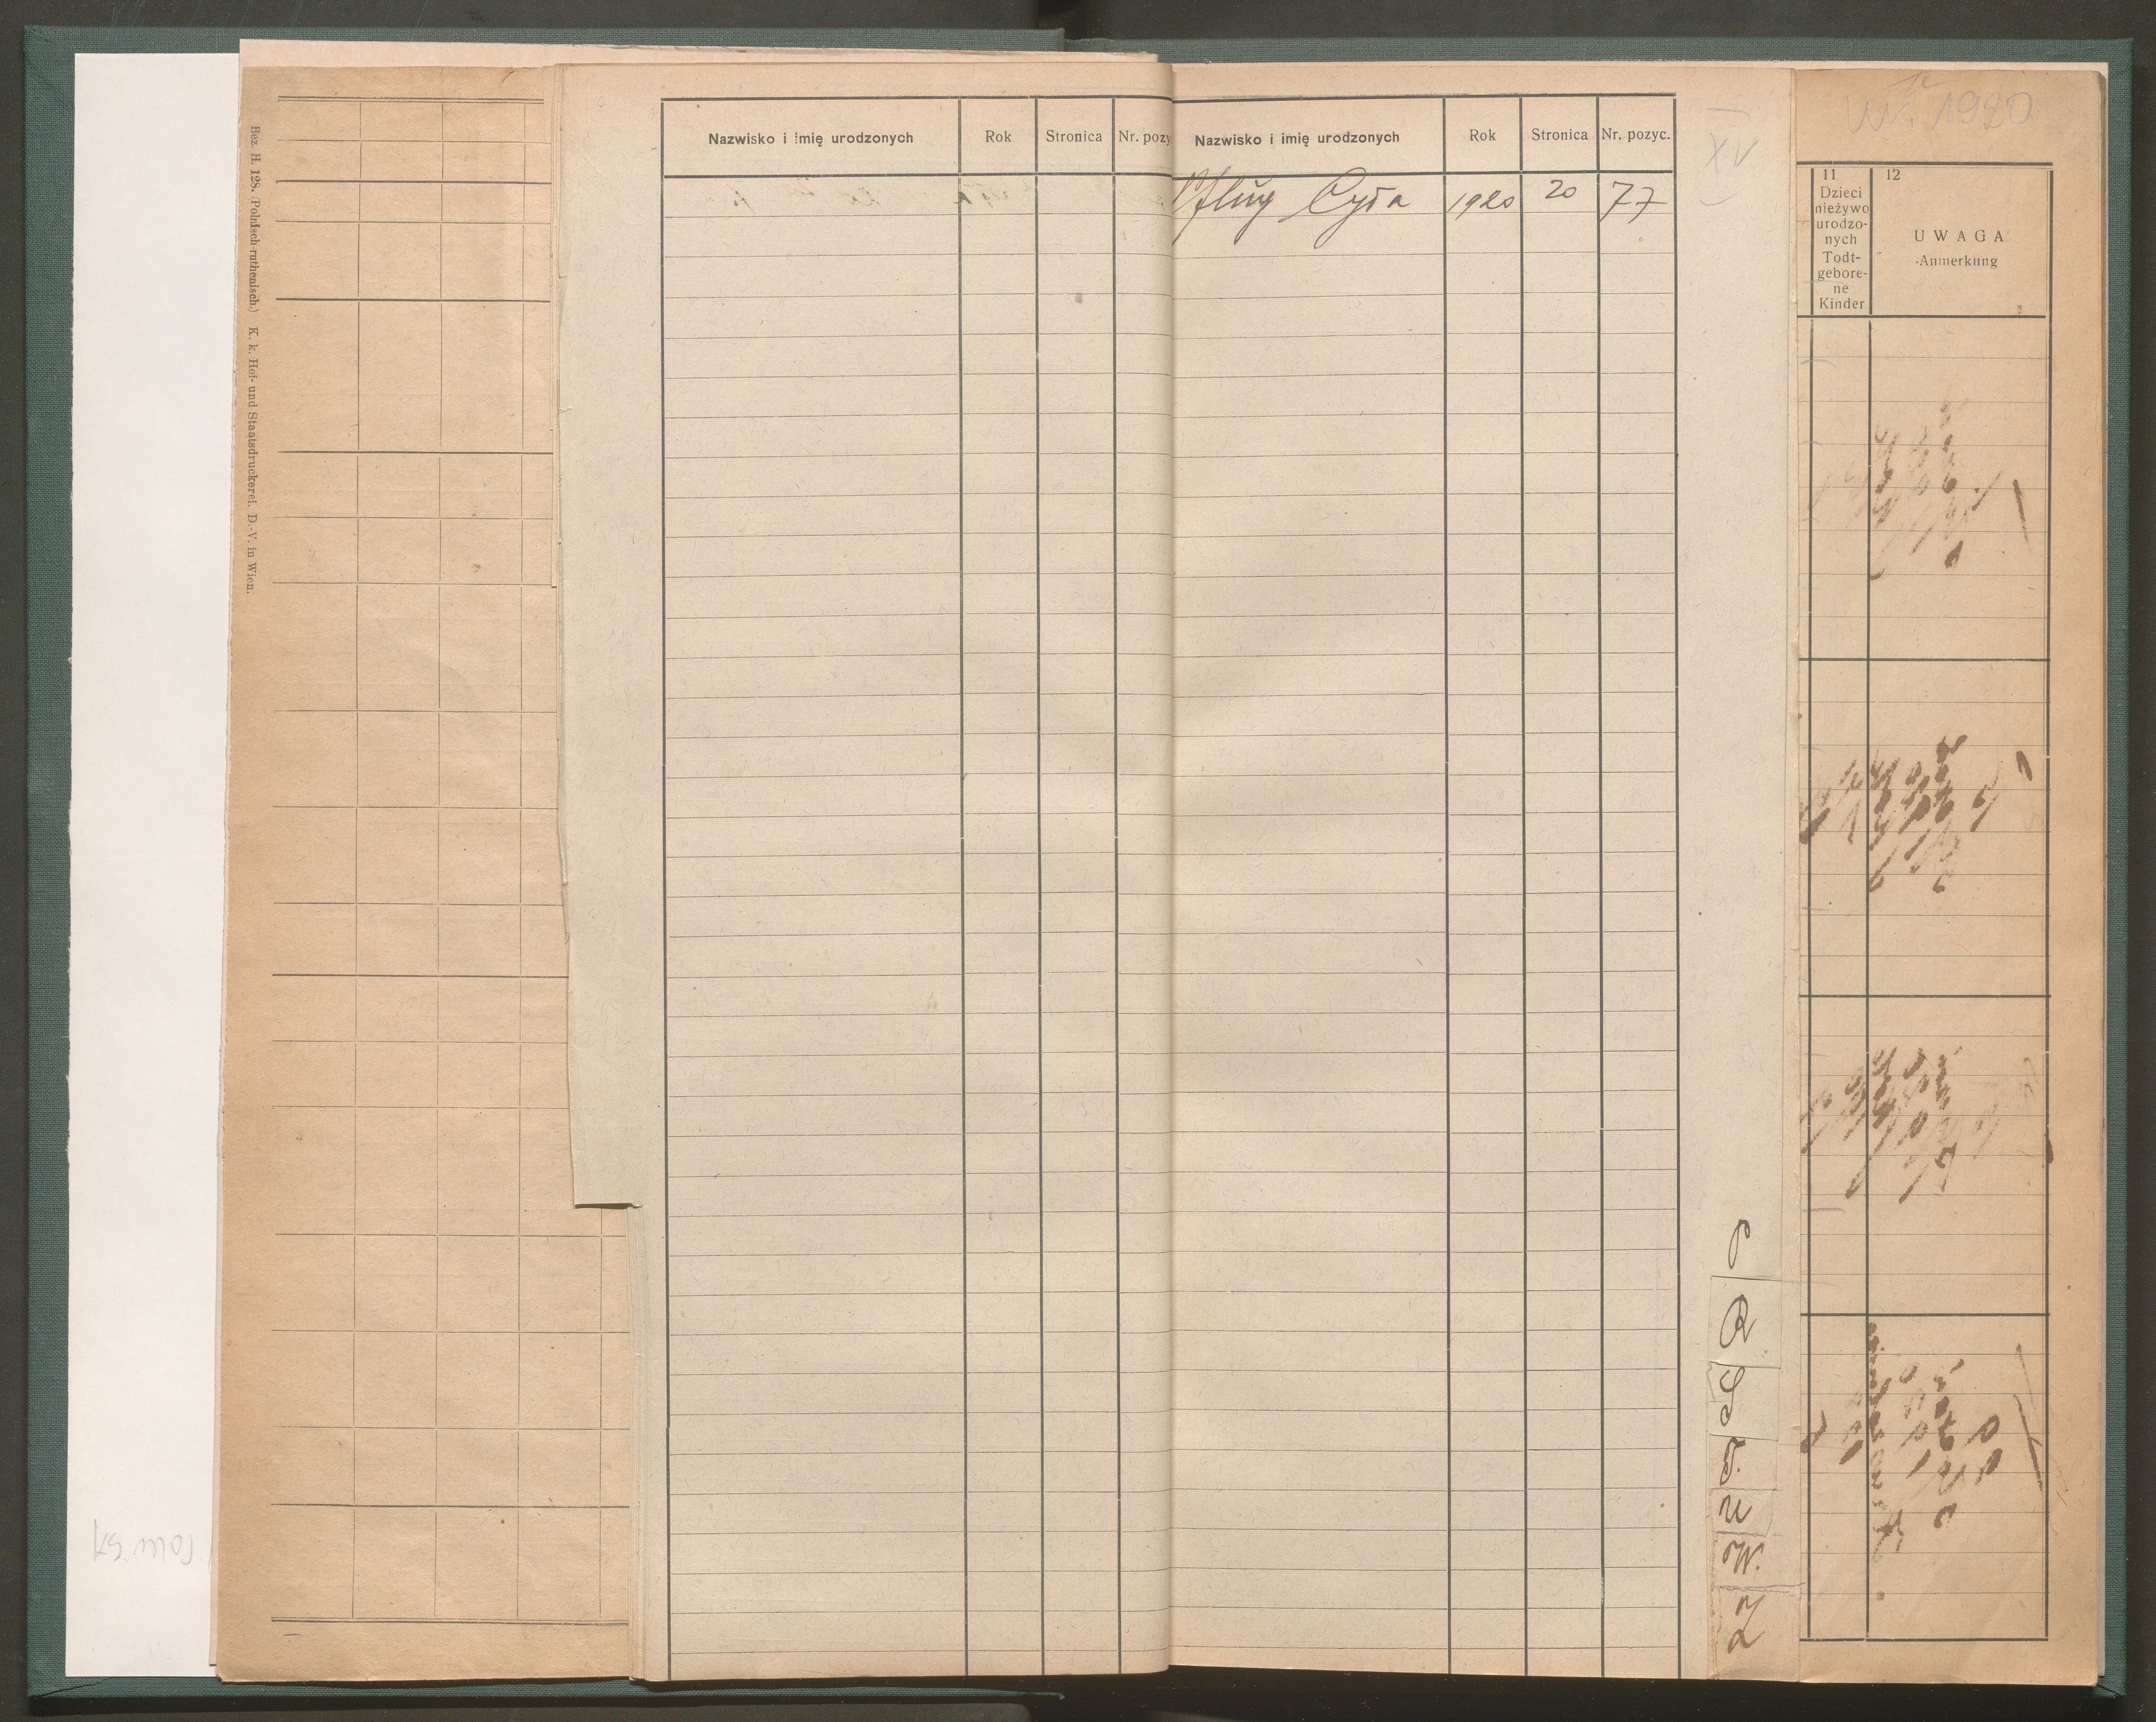 Bez. H. 128. (Polnisch-ruthenisch) K. k. Hof- und Staatsdruckerei. D.-V. in Wien.
Nazwisko i imię urodzonych Rok Stronica Nr. pozy
Nazwisko i imię urodzonych Rok Stronica Nr. pozyc.
Pflug Cyla 1920 20 77
XV
P
R
S
T.
U
W.
Z
Ur. 1920
11 12
Dzieci
nieżywo
urodzo-
nych
Todt-
gebore-
ne
Kinder
UWAGA
Anmerkung